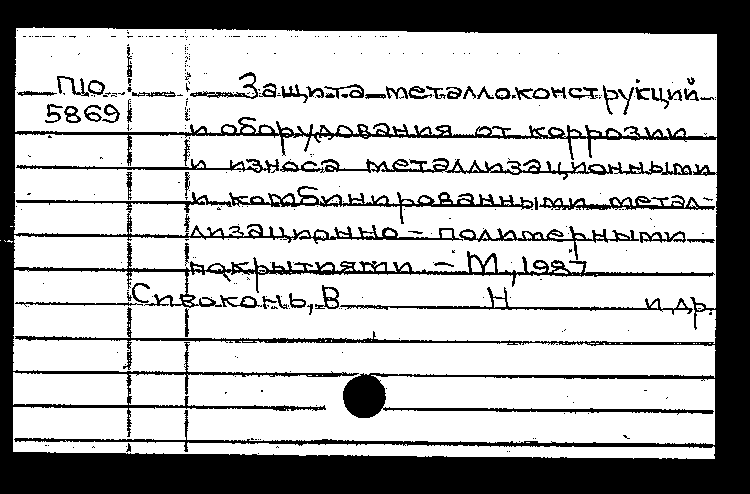 П10 Защита металлоконструкций
5869 и оборудования от коррозии
и износа металлизационными
и комбинированными метал-
лизационно - полимерными
покрытиями. - М., 1987
Сиваконь, В Н и др.